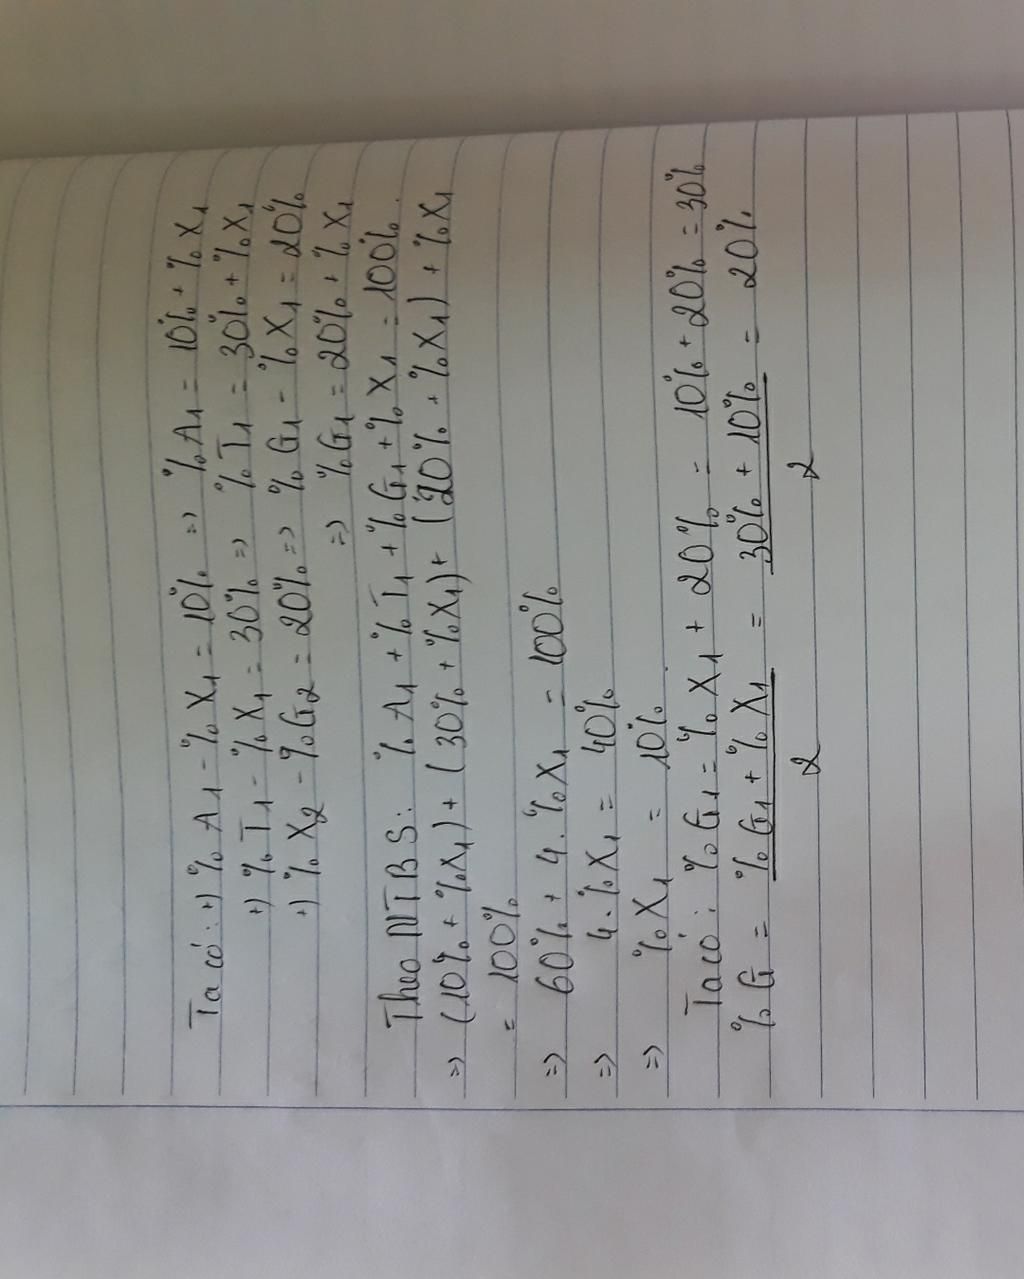 Ta có: +) %A1 - %X1 = 10% => %A1 = 10% + %X1
+) %T1 - %X1 = 30% => %T1 = 30% + %X1
+) %X2 - %G2 = 20% => %G1 - %X1 = 20%
=> %G1 = 20% + %X1
Theo NTBS: %A1 + %T1 + %G1 + %X1 = 100%.
=> (10% + %X1) + (30% + %X1) + (20% + %X1) + %X1
= 100%
=> 60% + 4.%X1 = 100%
=> 4.%X1 = 40%
=> %X1 = 10%
Ta có: %G1 = %X1 + 20% = 10% + 20% = 30%
%G = %G1 + %X1 / 2 = 30% + 10% / 2 = 20%